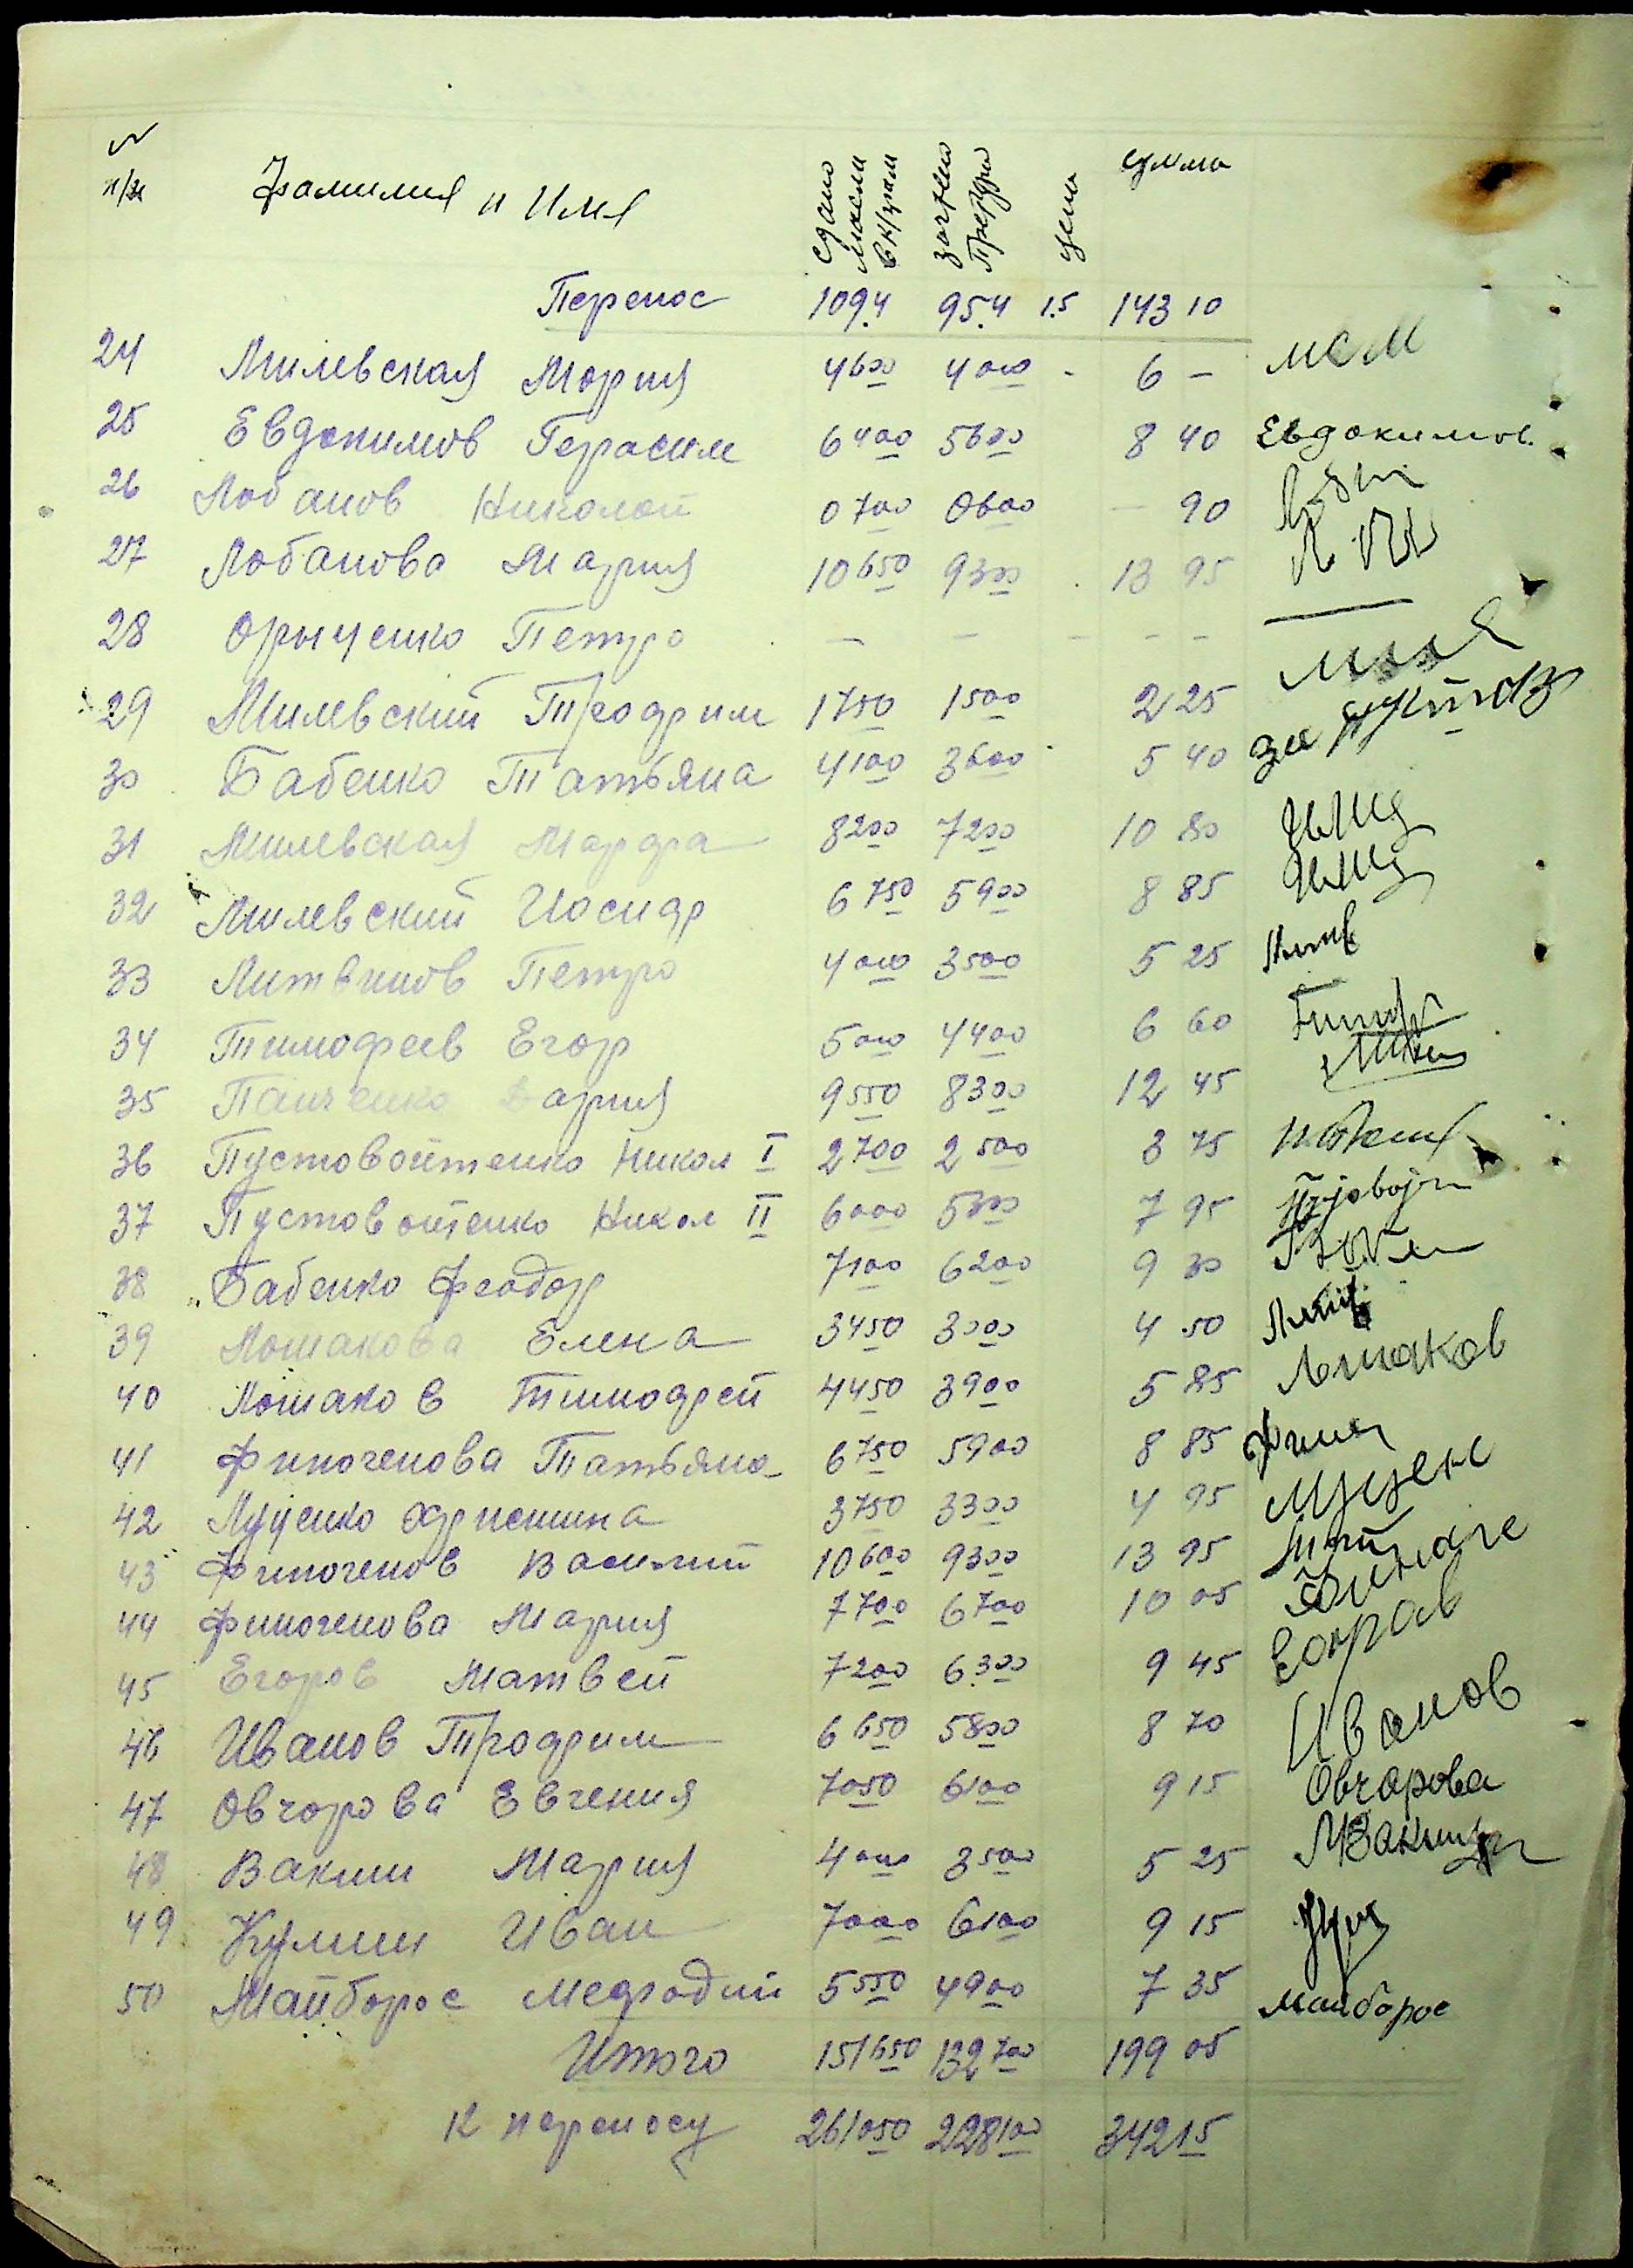 № п/п Фамилия и Имя сдано масла в к/грам зачтено Предпр цена сумма
Перенос 109,4 95,4 1.5 143 10
24 Милевская Мария 4600 4000 - 6 — МСМ
25 Евдокимов Герасим 6400 5600 8 40 Евдокимов
26 Лобанов Николай 0700 0600 — 90
27 Лобанова Мария 10650 9300 13 95
28 Орыченко Петро — — — — —
29 Милевский Трофим 1750 1500 2 25
30 Бабенко Татьяна 4100 3600 5 40
31 Милевская Марфа 8200 7200 10 80
32 Милевский Иосиф 6750 5900 8 85
33 Литвинов Петро 4000 3500 5 25 Литв
34 Тимофеев Егор 5000 4400 6 60
35 Панченко Дария 9550 8300 12 45
36 Пустовойтенко Никол I 2700 2500 3 75
37 Пустовойтенко Никол II 6000 5300 7 95
38 Бабенко Феодор 7100 6200 9 30
39 Лошакова Елена 3450 3000 4 50
40 Лошаков Тимофей 4450 3900 5 85 Лошаков
41 Финогенова Татьяна 6750 5900 8 85 Фин
42 Луценко Християна 3750 3300 4 95
43 Финогенов Василий 10600 9300 13 95
44 Финогенова Мария 7700 6700 10 05
45 Егоров Матвей 7200 6300 9 45 Егоров
46 Иванов Трофим 6650 5800 8 70 Иванов
47 Овчарова Евгения 7050 6100 9 15 Овчарова
48 Вакшин Мария 4000 3500 5 25
49 Кулиш Иван 7000 6100 9 15
50 Майборос Мефодий 5550 4900 7 35 Майборос
Итого 151650 132700 199 05
К переносу 261050 228100 342 15